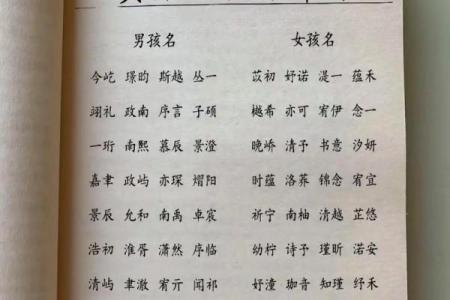 男孩名 女孩名
今屹 璟昀 斯越 丛一 苡初 妤诺 湜一 蕴禾
翊礼 政南 序言 子硕 樾希 亦可 宥伊 念一
一珩 南熙 慕辰 景澄 晚峤 清予 书意 汐妍
嘉聿 政屿 亦琛 熠阳 时蕴 洛荞 锦念 宥宜
景辰 允和 南禹 卓宸 祈宁 南柚 清越 芷悠
浩初 淮胥 潇然 序临 幼柠 诗予 瑾昕 诺安
清屿 聿澈 宥亓 闻祁 妤潼 珈音 知瑾 纾禾